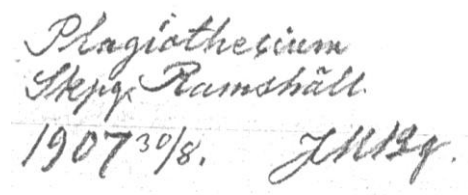 Plagiothecium
Skpg. Ramshäll.
1907 30/8.